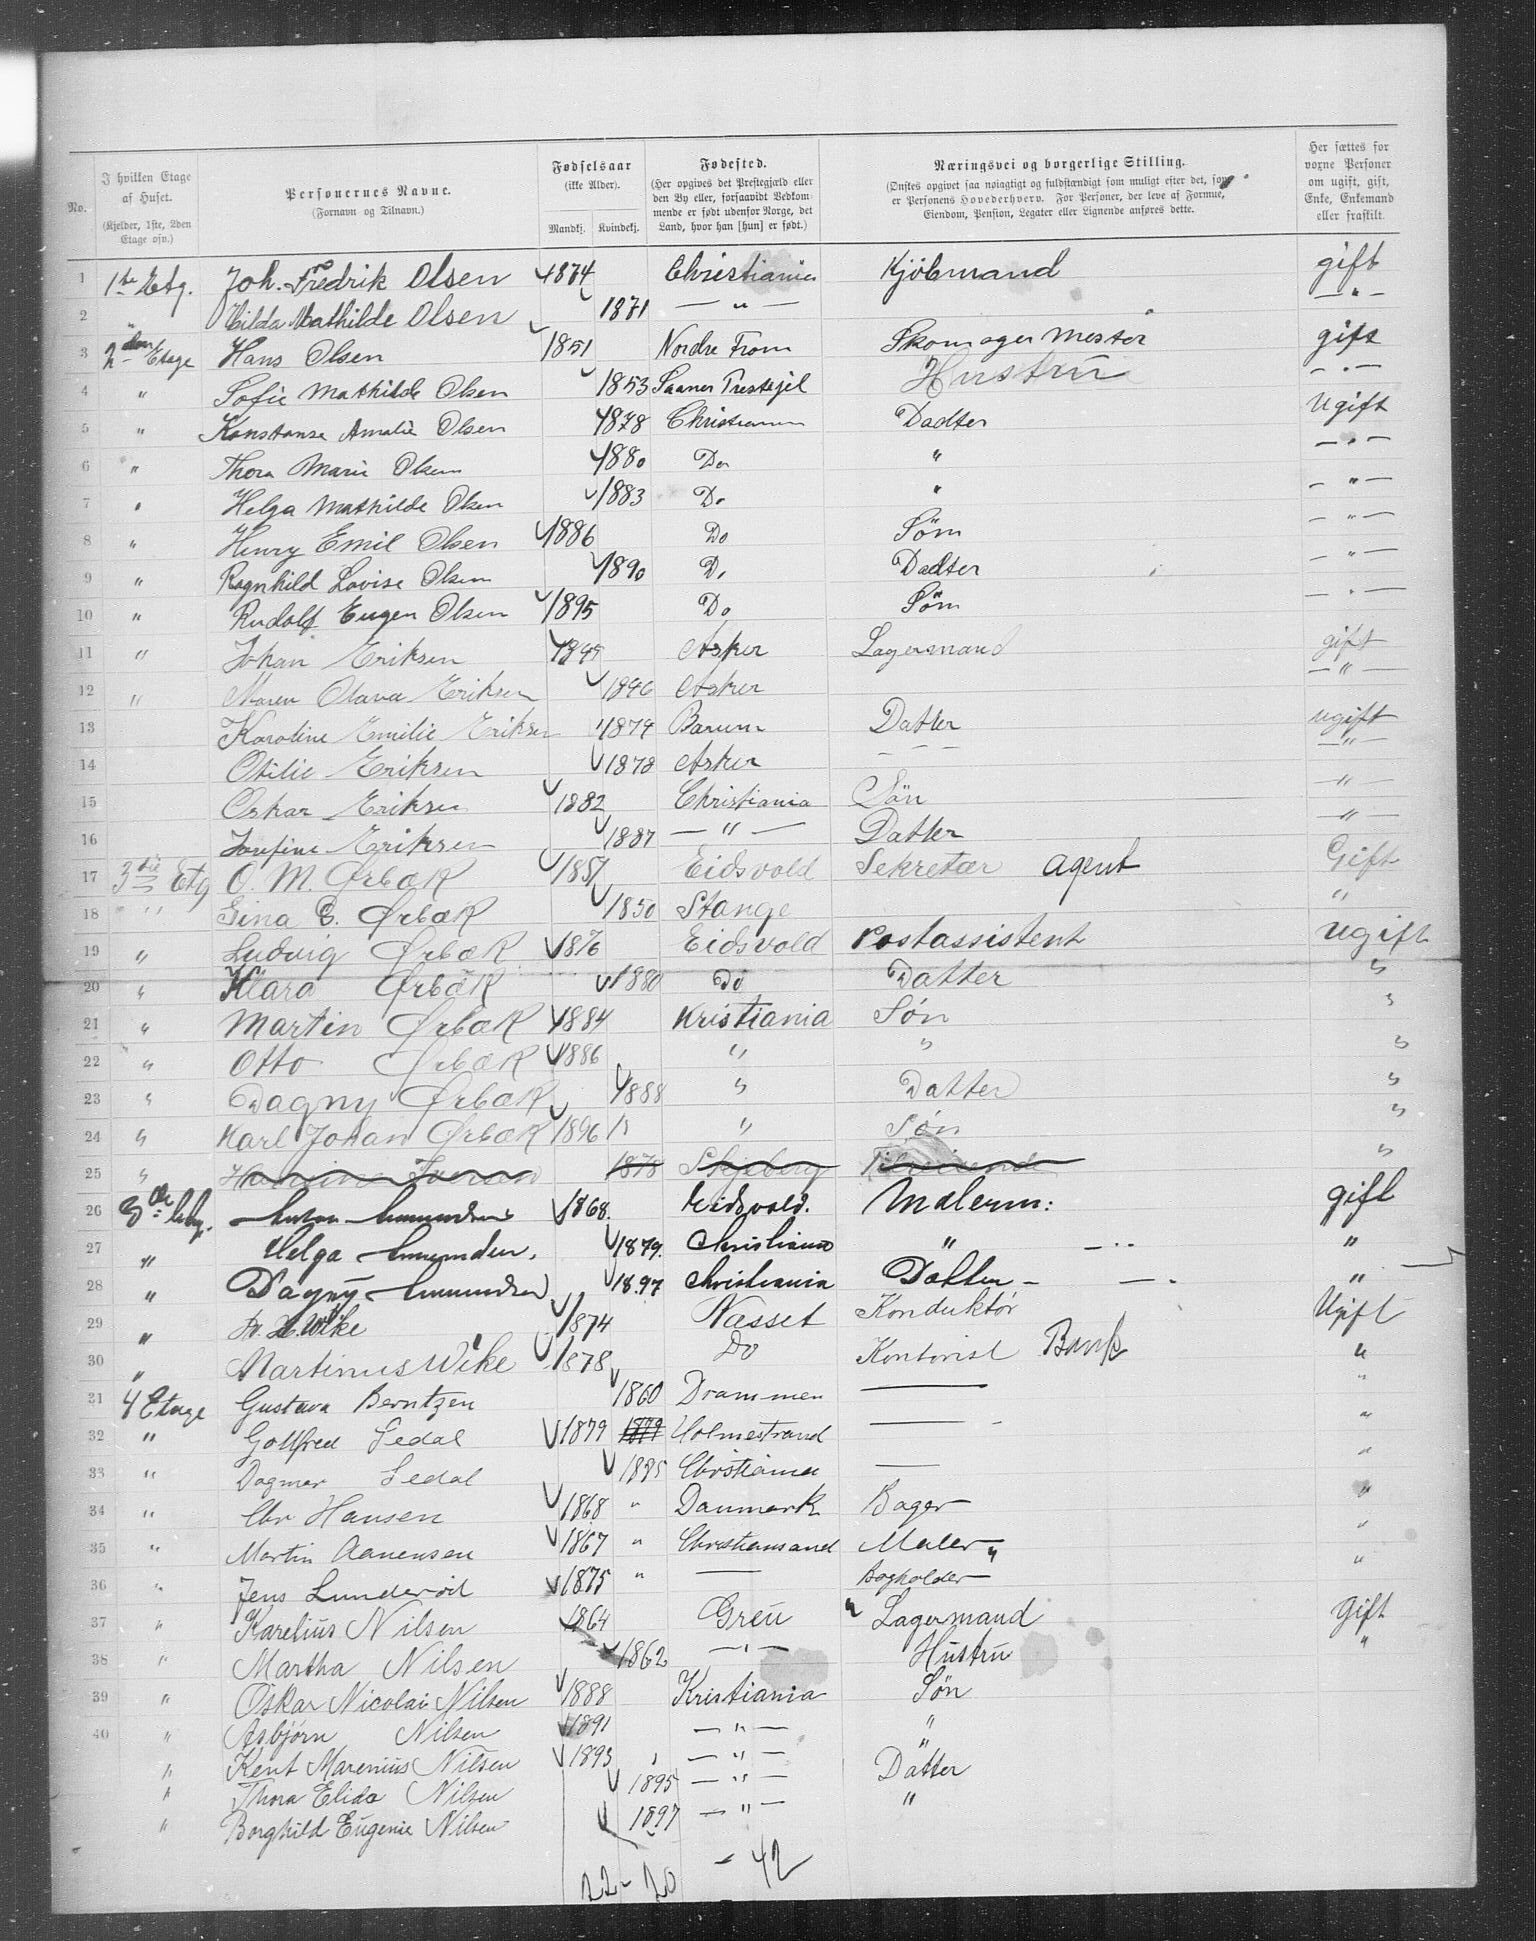 No.
I hvilken Etage af Huset. (Kjelder, 1ste, 2den Etage osv.)
Personernes Navne. (Fornavn og Tilnavn.)
Fødselsaar (ikke Alder). Mandkj. Kvindekj.
Fødested. (Her opgives det Prestegjæld eller den By eller, forsaavidt Vedkommende er født udenfor Norge, det Land, hvor han [hun] er født.)
Næringsvei og borgerlige Stilling. (Ønskes opgivet saa nøiagtigt og fuldstændigt som muligt efter det, som er Personens Hovederhverv. For Personer, der leve af Formue, Eiendom, Pension, Legater eller Lignende anføres dette.)
Her sættes for voxne Personer om ugift, gift, Enke, Enkemand eller fraskilt.
1 1ste Etg. Joh. Fredrik Olsen 1874 Christiania Kjöbmand gift
2 " Hilda Mathilde Olsen 1871 — " — — " —
3 2den Etage Hans Olsen 1851 Nordre From Skomager Mester gift
4 " Sofie Mathilde Olsen 1853 Hustru — " —
5 " Konstanse Amalie Olsen 1878 Christiania Dadter Ugift
6 " Thora Marie Olsen 1880 Do " — " —
7 " Helga Mathilde Olsen 1883 Do " — " —
8 " Henry Emil Olsen 1886 Do Söm — " —
9 " Ragnhild Lovise Olsen 1890 Do Dadter — " —
10 " Rudolf Eugen Olsen 1895 Do Söm — " —
11 " Johan Eriksen Asker Lagermand gift
12 " Maren Olava Eriksen 1846 Asker — " —
13 Karoline Emilie Eriksen 1874 Barum Datter ugift
14 Otilie Eriksen 1878 Asker — — — — " —
15 Oskar Eriksen 1882 Christiania Sön — " —
16 Josefine Eriksen 1887 — " — Datter — " —
17 3die Etg O. M. Ørbæk 1851 Eidsvold Sekretær Agent Gift
18 " Gina E. Ørbæk 1850 Stange "
19 " Ludvig Ørbæk 1876 Eidsvold Postassistent Ugift
20 " Klara Ørbæk 1880 Do Datter "
21 " Martin Ørbæk 1884 Kristiania Søn "
22 " Otto Ørbæk 1886 " " "
23 " Dagny Ørbæk 1888 " Datter "
24 " Karl Johan Ørbæk 1896 " " Søn "
25 " 1878 Skjeberg "
26 3die Etg. Anton Amundsen 1868. Eidsvold. Malerm: gift
27 " Helga Amundsen. 1879. Christiania " "
28 " Dagny Amundsen 1897 Christiania Datter — "
29 " Wike 1874 Næsset Konduktør Ugift
30 " Martinus Wike 1878 Do Kontorist Bank "
31 4 Etage Gustava Berntzen 1860 Drammen —— "
32 " Gottfred Sedal 1879 1879 Holmestrand —— "
33 " Dagmar Sedal 1895 Christiania — "
34 " Chr Hansen 1868 " Danmark Bager "
35 " Martin Aanensen 1867 " Christiansand Maler "
36 " Jens Lunderød 1875 " — Bogholder "
37 " Karelius Nilsen 1864 Greu " Lagermand Gift
38 " Martha Nilsen 1862 — " — Hustru "
39 " Oskar Nicolai Nilsen 1888 Kristiania Søn
40 " Asbjørn Nilsen 1891 — " — "
" Kent Marenius Nilsen 1893 — " — "
" Thora Elida Nilsen 1895 — " — Datter
" Borghild Eugenie Nilsen 1897 — " — "
22 - 20 - 42